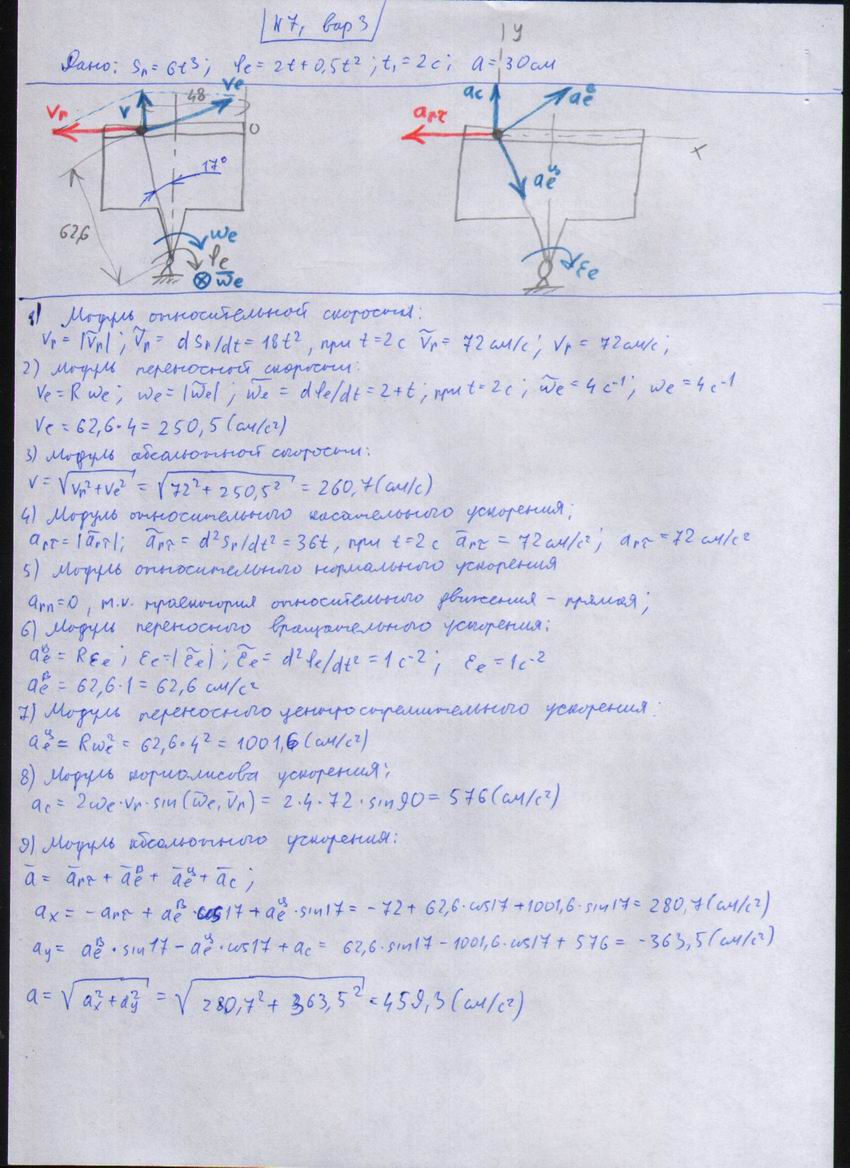 №7, вар 3
Дано: Sr = 6t³; φe = 2t + 0,5t²; t₁ = 2c; a = 30см
Vr V Ve 48 O
17°
62,6
ωe
φe
ω̄e
y
ac aeᵇ
arτ
x
aeᶸ
εe
1) Модуль относительной скорости:
Vr = |Ṽr|; Ṽr = dSr/dt = 18t², при t = 2c Ṽr = 72см/c; Vr = 72см/c;
2) Модуль переносной скорости:
Ve = Rωe; ωe = |ω̃e|; ω̃e = dφe/dt = 2+t; при t = 2c; ω̃e = 4c⁻¹; ωe = 4c⁻¹
Ve = 62,6·4 = 250,5 (см/c²)
3) Модуль абсолютной скорости:
V = √(Vr² + Ve²) = √(72² + 250,5²) = 260,7 (см/c)
4) Модуль относительного касательного ускорения;
arτ = |ãrτ|; ãrτ = d²Sr/dt² = 36t, при t = 2c ãrτ = 72см/c²; arτ = 72см/c²
5) Модуль относительного нормального ускорения
arn = 0, т.к. траектория относительного движения – прямая;
6) Модуль переносного вращательного ускорения:
aeᵇ = Rεe; εe = |ε̃e|; ε̃e = d²φe/dt² = 1c⁻²; εe = 1c⁻²
aeᵇ = 62,6·1 = 62,6 см/c²
7) Модуль переносного центростремительного ускорения:
aeᶸ = Rωe² = 62,6·4² = 1001,6 (см/c²)
8) Модуль кориолисова ускорения;
ac = 2ωe·Vr·sin(ω̄e, V̄r) = 2·4·72·sin90 = 576 (см/c²)
9) Модуль абсолютного ускорения:
ā = ārτ + āeᵇ + āeᶸ + āc;
ax = -arτ + aeᵇ·cos17 + aeᶸ·sin17 = -72 + 62,6·cos17 + 1001,6·sin17 = 280,7 (см/c²)
ay = aeᵇ·sin17 - aeᶸ·cos17 + ac = 62,6·sin17 - 1001,6·cos17 + 576 = -363,5 (см/c²)
a = √(ax² + ay²) = √(280,7² + 363,5²) = 459,3 (см/c²)